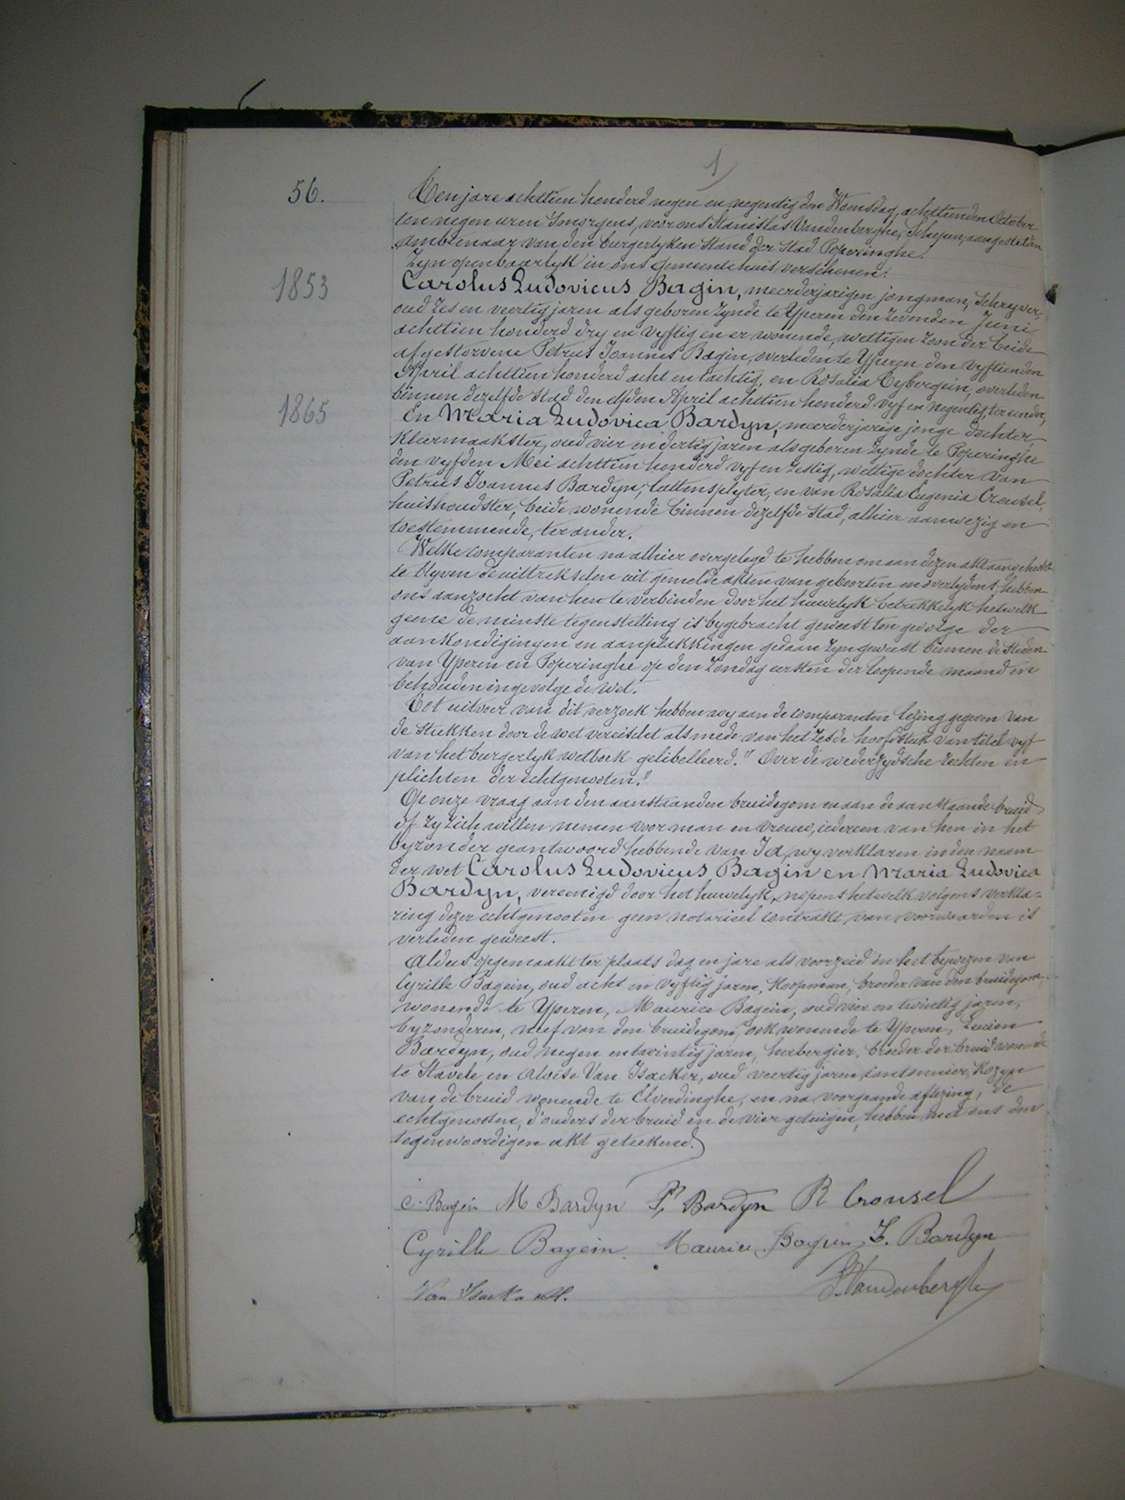 1
56.
Ten jare achttien honderd negen en negentig den Woensdag, achttienden October
ten negen uren 's morgens, voor ons Stanislas Vandenberghe, Schepen, aangestelden
Ambtenaar van den burgerlyken stand der Stad Poperinghe.
Zyn openbaarlyk in ons gemeentehuis verschenen:
1853
Carolus Ludovicus Bagin, meerderjarigen jongman, Schryver,
oud zes en veertig jaren als geboren zynde te Yperen den zevenden Juni
achttien honderd dry en vyftig en er wonende, wettigen zoon der beide
afgestorvene Petrus Joannes Bagin, overleden te Yperen den vyftienden
April achttien honderd acht en tachtig, en Rosalia Cybergein, overleden
binnen dezelfde stad den elfden April achttien honderd vyf en negentig, ter eender,
1865
En Maria Ludovica Bardyn, meerderjarige jonge dochter
Kleermaakster, oud vier en dertig jaren als geboren zynde te Poperinghe
den vyfden Mei achttien honderd vyf en zestig, wettige dochter van
Petrus Joannes Bardyn, lattensplyter, en van Rosalia Eugenia Creusel,
huishoudster, beide wonende binnen dezelfde stad, alhier aanwezig en
toestemmende, ter ander.
Welke comparanten na alhier overgelegd te hebben om aan dezen akt aangehecht
te blyven de uittrekselen uit gemelde akten van geboorten en overlydens, hebben
ons aanzocht van hen te verbinden door het huwelyk betrekkelyk hetwelk
geene de minste tegenstelling is bygebracht geweest ten gevolge der
aankondigingen en aanplakkingen gedaan zyn geweest binnen de steden
van Yperen en Poperinghe op den zondag eersten der loopende maand en
behouden ingevolge de wet.
Tot uitvoer van dit verzoek hebben wy aan de comparanten lezing gegeven van
de stukken door de wet vereischt alsmede van het zesde hoofdstuk van titel vyf
van het burgerlyk wetboek gelibelleerd: "Over de wederzydsche rechten en
plichten der echtgenooten."
Op onze vraag aan den aanstaanden bruidegom en aan de aanstaande bruid
of zy zich willen nemen voor man en vrouw, iedereen van hen in het
byzonder geantwoord hebbende van Ja, wy verklaren in den naam
der wet Carolus Ludovicus Bagin en Maria Ludovica
Bardyn, vereenigd door het huwelyk, nopens hetwelk volgens verkla-
ring dezer echtgenooten geen notarieel contrakt van voorwaarden is
verleden geweest.
Aldus opgemaakt ter plaats dag en jare als voorzeid in het bywezen van
Cyrille Bagein, oud acht en vyftig jaren, koopman, broeder van den bruidegom,
wonende te Yperen, Maurice Bagein, oud vier en twintig jaren,
byzonderen, neef van den bruidegom, ook wonende te Yperen, Lucien
Bardyn, oud negen en twintig jaren, herbergier, broeder der bruid wonende
te Stavele en Aloïse Van Isacker, oud veertig jaren, cantonnier, kozyn
van de bruid wonende te Elverdinghe, en na voorgaande aflezing, de
echtgenooten, d'ouders der bruid en de vier getuigen, hebben met ons den
tegenwoordigen akt geteekend.
C. Bagein M Bardyn P. Bardyn R Crousel
Cyrille Bagein Maurice Bagein L. Bardyn
Van Isacker all. S. Vandenberghe